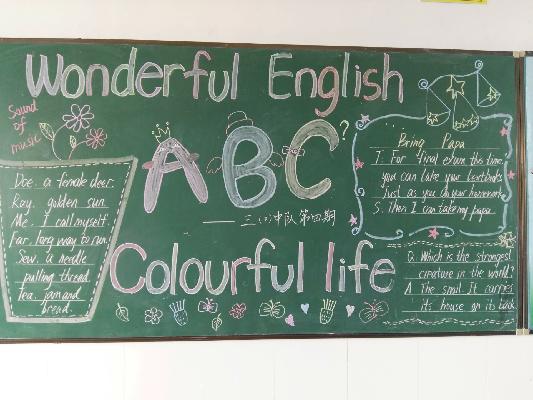 Wonderful English
Sound
of
music
ABC
?
Doe. a female deer.
Ray. golden sun.
Me. I call myself.
Far. long way to run.
Sew. a needle
pulling thread.
Tea. jam and
bread.
三(6)中队 第四期
Colourful life
Bring Papa
T: For final exam this time,
you can take your textbooks
just as you do your homework.
S: Then I can take my papa.
Q: Which is the strongest
creature in the world?
A: The snail. It carries
it's house on its back.